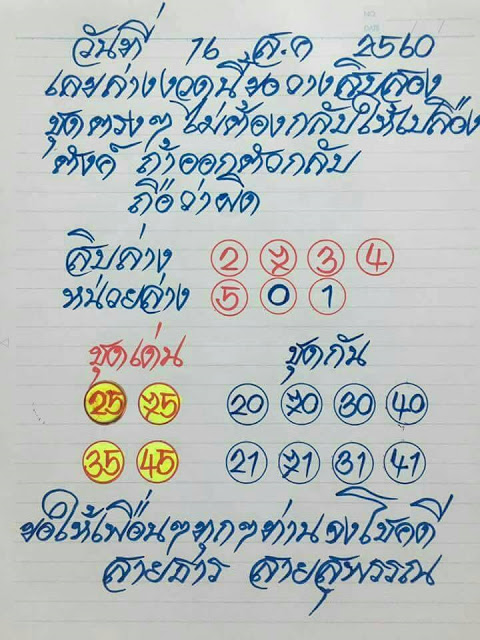 วันที่ 16 ส.ค 2560
เลขล่างงวดนี้ขอวางสิบสอง
ชุดตรงๆ ไม่ต้องกลับให้เปลือง
ตังค์ ถ้าออกตัวกลับ
ถือว่าผิด
สิบล่าง 2 7 3 4
หน่วยล่าง 5 0 1
ชุดเด่น ชุดกัน
25 75 20 70 30 40
35 45 21 71 31 41
ขอให้เพื่อนๆทุกๆท่านจงโชคดี
สายธาร สายสุพรรณ